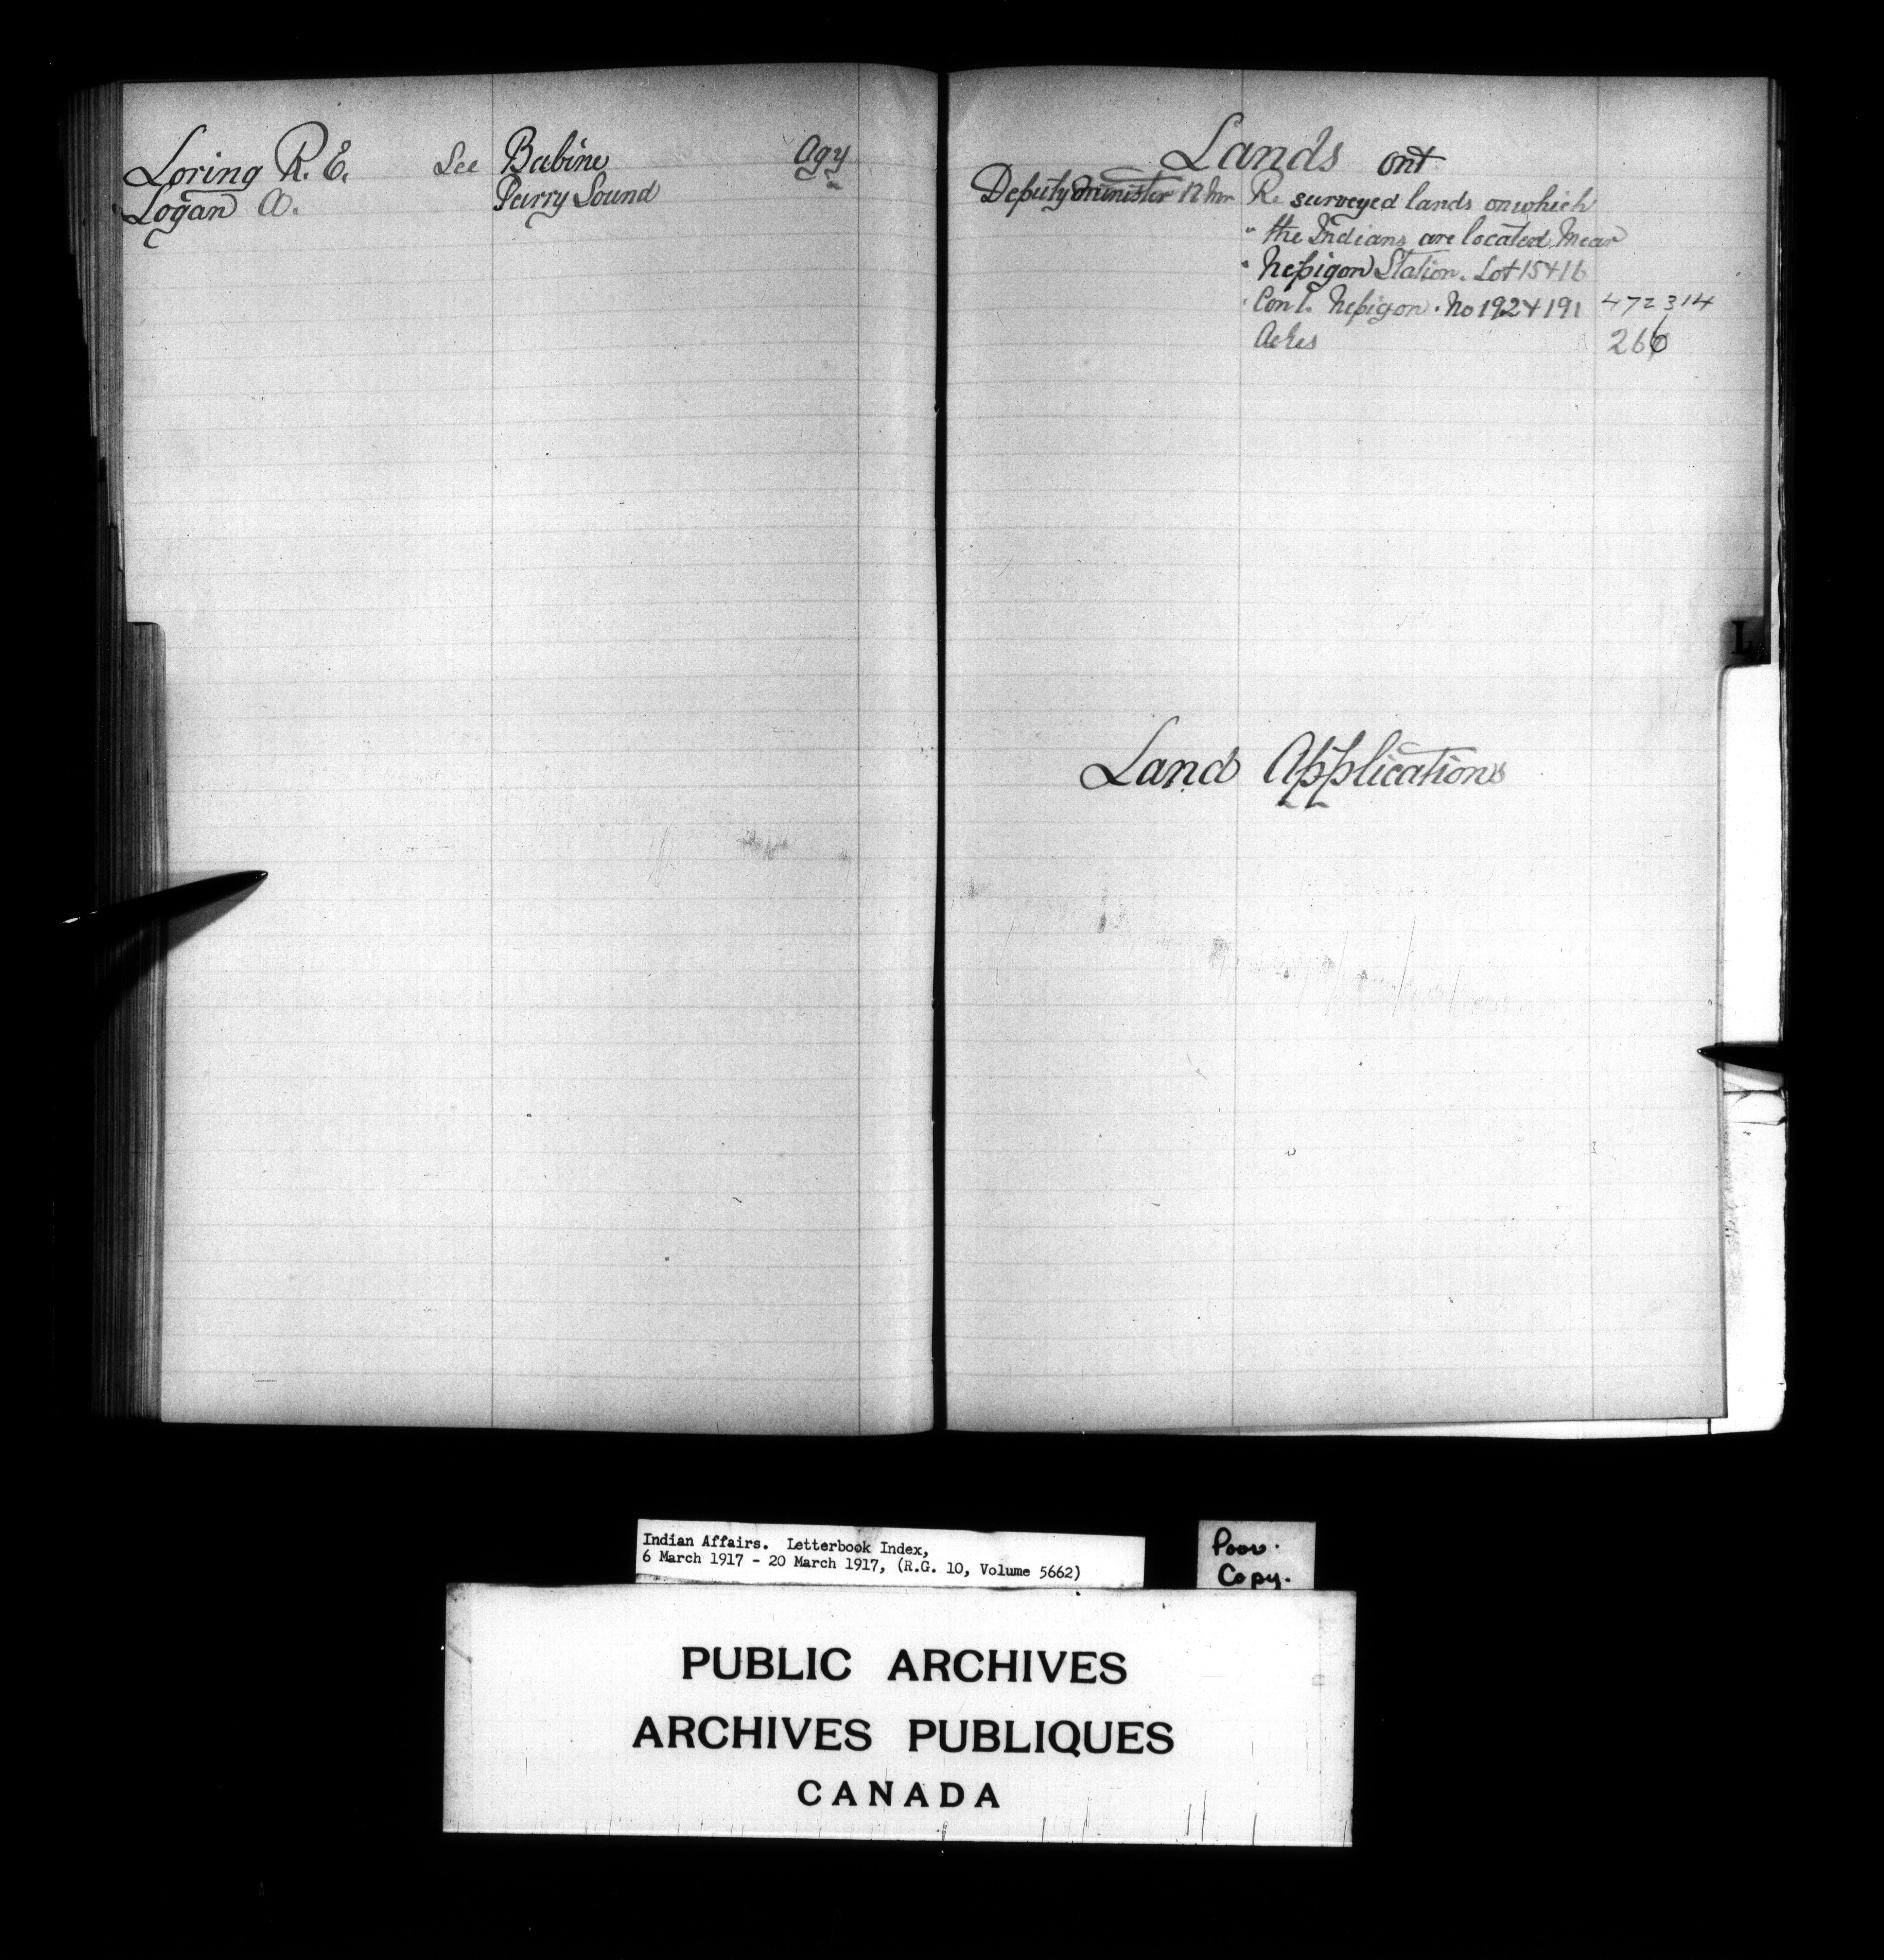 Loring R. E. See Babine Agy
Logan A. Parry Sound
Lands Ont
Deputy Minister 12 Mr Re surveyed lands on which
" the Indians are located near
" Nepigon Station. Lot 15 + 16
" Con 1. Nepigon. No 192 + 191 472314
Acres 266
L
Land Applications
Indian Affairs. Letterbook Index,
6 March 1917 - 20 March 1917, (R.G. 10, Volume 5662)
Poor.
Copy.
PUBLIC ARCHIVES
ARCHIVES PUBLIQUES
CANADA